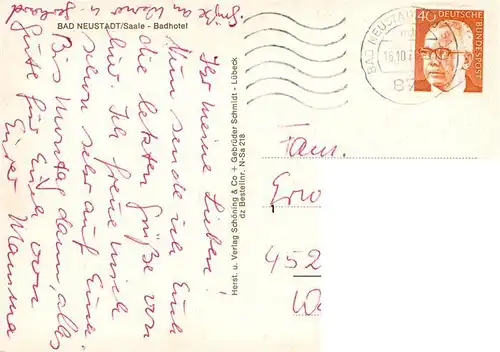 BAD NEUSTADT/Saale - Badhotel
Grüße an Werner u.
Ihr meine Lieben!
Nun sende ich Euch
die letzten Grüße von
hier. Ich freue mich
schon sehr auf Euch.
Bis Montag dann, alles
Gute für Euch von
Eurer Mamma
Herst. u. Verlag Schöning & Co + Gebrüder Schmidt - Lübeck
dz Bestellnr. N-Sa 218
BAD NEUSTADT
16.10.7
87
40 DEUTSCHE
BUNDESPOST
Fam.
Erw
452